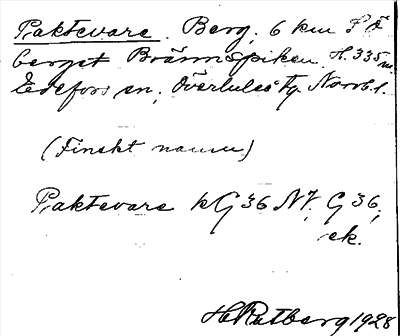 Paktevare. Berg, 6 km S å
berget Brännspiken. H. 335 m.
Edefors sn, Överluleå tg. Norrb. l.
(Finskt namn)
Paktevare kG36 NV, G36,
ek.
H Rutberg 1928